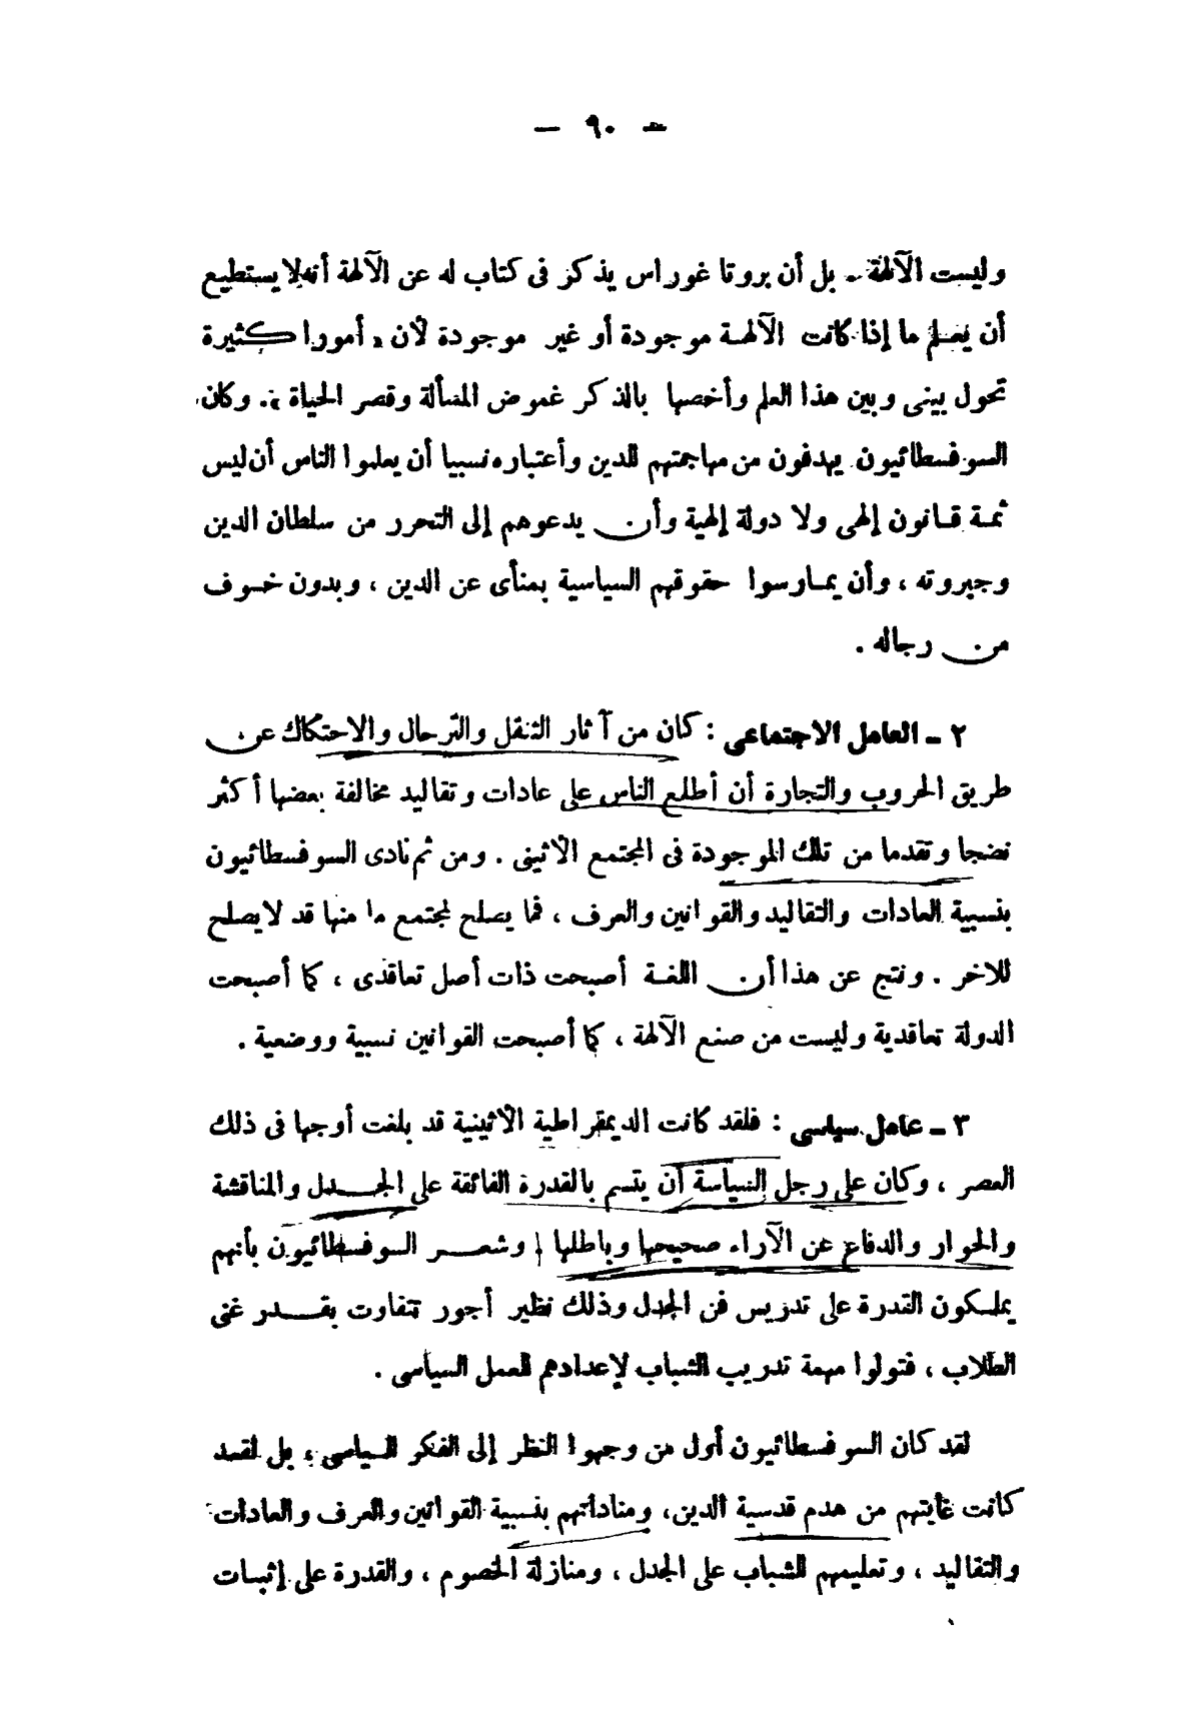 — ٩٠ —
وليست الآلهة. بل أن بروتاغوراس يذكر فى كتاب له عن الآلهة أنه لا يستطيع
أن يعلم ما إذا كانت الآلهة موجودة أو غير موجودة لأن « أمورا كثيرة
تحول بينى وبين هذا العلم وأخصها بالذكر غموض المسألة وقصر الحياة ». وكان
السوفسطائيون يهدفون من مهاجمتهم للدين وأعتباره نسبيا أن يعلموا الناس أن ليس
ثمة قانون إلهى ولا دولة إلهية وأن يدعوهم إلى التحرر من سلطان الدين
وجبروته ، وأن يمارسوا حقوقهم السياسية بمنأى عن الدين ، وبدون خوف
من رجاله .
٢ - العامل الاجتماعى : كان من آثار التنقل والترحال والاحتكاك عن
طريق الحروب والتجارة أن أطلع الناس على عادات وتقاليد مخالفة بعضها أكثر
نضجا وتقدما من تلك الموجودة فى المجتمع الأثينى . ومن ثم نادى السوفسطائيون
بنسبية العادات والتقاليد والقوانين والعرف ، فما يصلح لمجتمع ما منها قد لا يصلح
للاخر . ونتج عن هذا أن اللغة أصبحت ذات أصل تعاقدى ، كما أصبحت
الدولة تعاقدية وليست من صنع الآلهة ، كما أصبحت القوانين نسبية ووضعية .
٣ - عامل سياسى : فلقد كانت الديمقراطية الأثينية قد بلغت أوجها فى ذلك
العصر ، وكان على رجل السياسة أن يتسم بالقدرة الفائقة على الجدل والمناقشة
والحوار والدفاع عن الآراء صحيحها وباطلها وشعر السوفسطائيون بأنهم
يملكون القدرة على تدريس فن الجدل وذلك نظير أجور تتفاوت بقدر غنى
الطلاب ، فتولوا مهمة تدريب الشباب لإعدادهم للعمل السياسى .
لقد كان السوفسطائيون أول من وجهوا النظر إلى الفكر السياسى ، بل لقد
كانت غايتهم من هدم قدسية الدين، ومناداتهم بنسبية القوانين والعرف والعادات
والتقاليد ، وتعليمهم الشباب على الجدل ، ومنازلة الخصوم ، والقدرة على إثبات